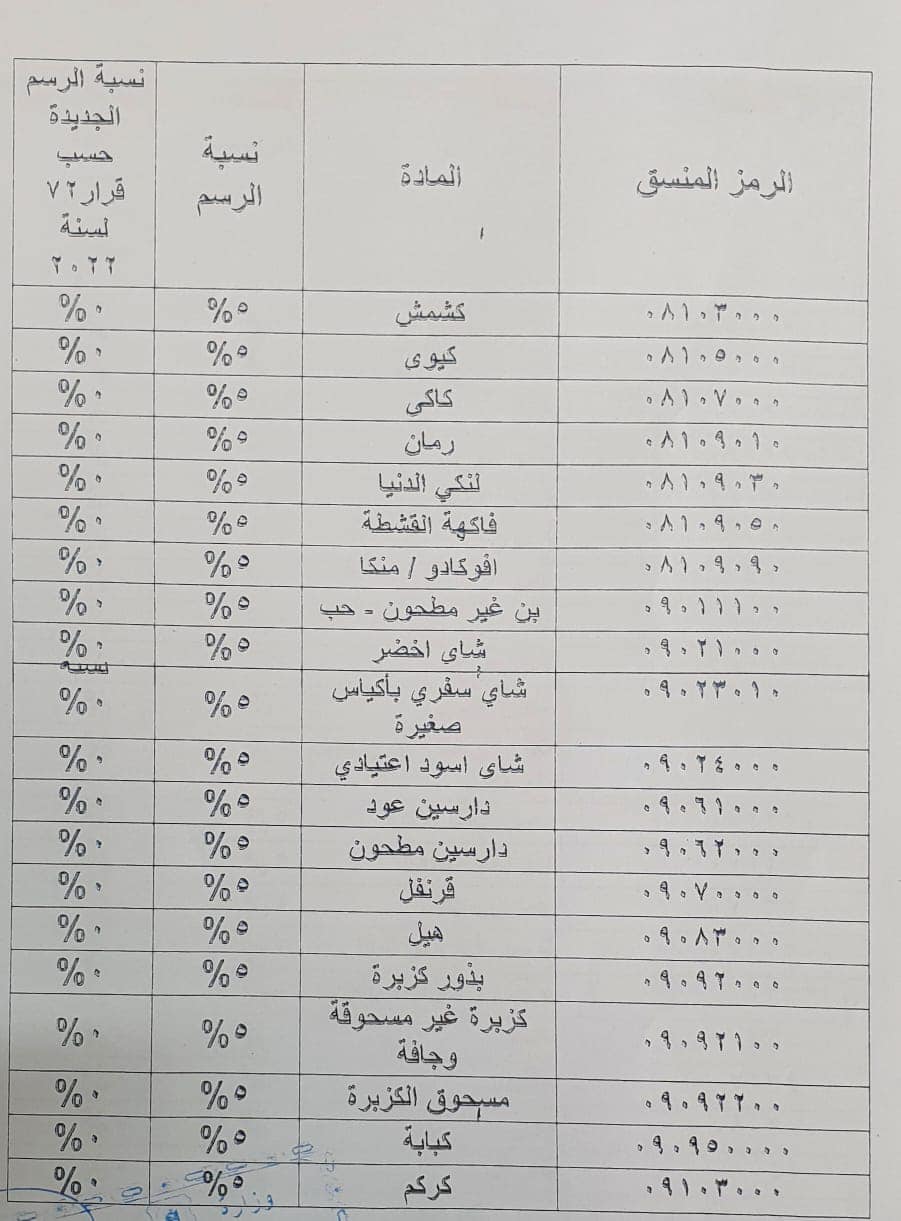 الرمز المنسق | المادة | نسبة الرسم | نسبة الرسم الجديدة حسب قرار ٧٢ لسنة ٢٠٢٢
٠٨١٠٣٠٠٠ | كشمش | %٥ | %٠
٠٨١٠٥٠٠٠ | كيوي | %٥ | %٠
٠٨١٠٧٠٠٠ | كاكي | %٥ | %٠
٠٨١٠٩٠١٠ | رمان | %٥ | %٠
٠٨١٠٩٠٣٠ | لنكي الدنيا | %٥ | %٠
٠٨١٠٩٠٥٠ | فاكهة القشطة | %٥ | %٠
٠٨١٠٩٠٩٠ | افوكادو / منكا | %٥ | %٠
٠٩٠١١١٠٠ | بن غير مطحون - حب | %٥ | %٠
٠٩٠٢١٠٠٠ | شاي اخضر | %٥ | %٠
٠٩٠٢٣٠١٠ | شاي سفري بأكياس صغيرة | %٥ | نسبة %٠
٠٩٠٢٤٠٠٠ | شاى اسود اعتيادي | %٥ | %٠
٠٩٠٦١٠٠٠ | دارسين عود | %٥ | %٠
٠٩٠٦٢٠٠٠ | دارسين مطحون | %٥ | %٠
٠٩٠٧٠٠٠٠ | قرنفل | %٥ | %٠
٠٩٠٨٣٠٠٠ | هيل | %٥ | %٠
٠٩٠٩٢٠٠٠ | بذور كزبرة | %٥ | %٠
٠٩٠٩٢١٠٠ | كزبرة غير مسحوقة وجافة | %٥ | %٠
٠٩٠٩٢٢٠٠ | مسحوق الكزبرة | %٥ | %٠
٠٩٠٩٥٠٠٠٠ | كبابة | %٥ | %٠
٠٩١٠٣٠٠٠ | كركم | %٥ | %٠
وزارة